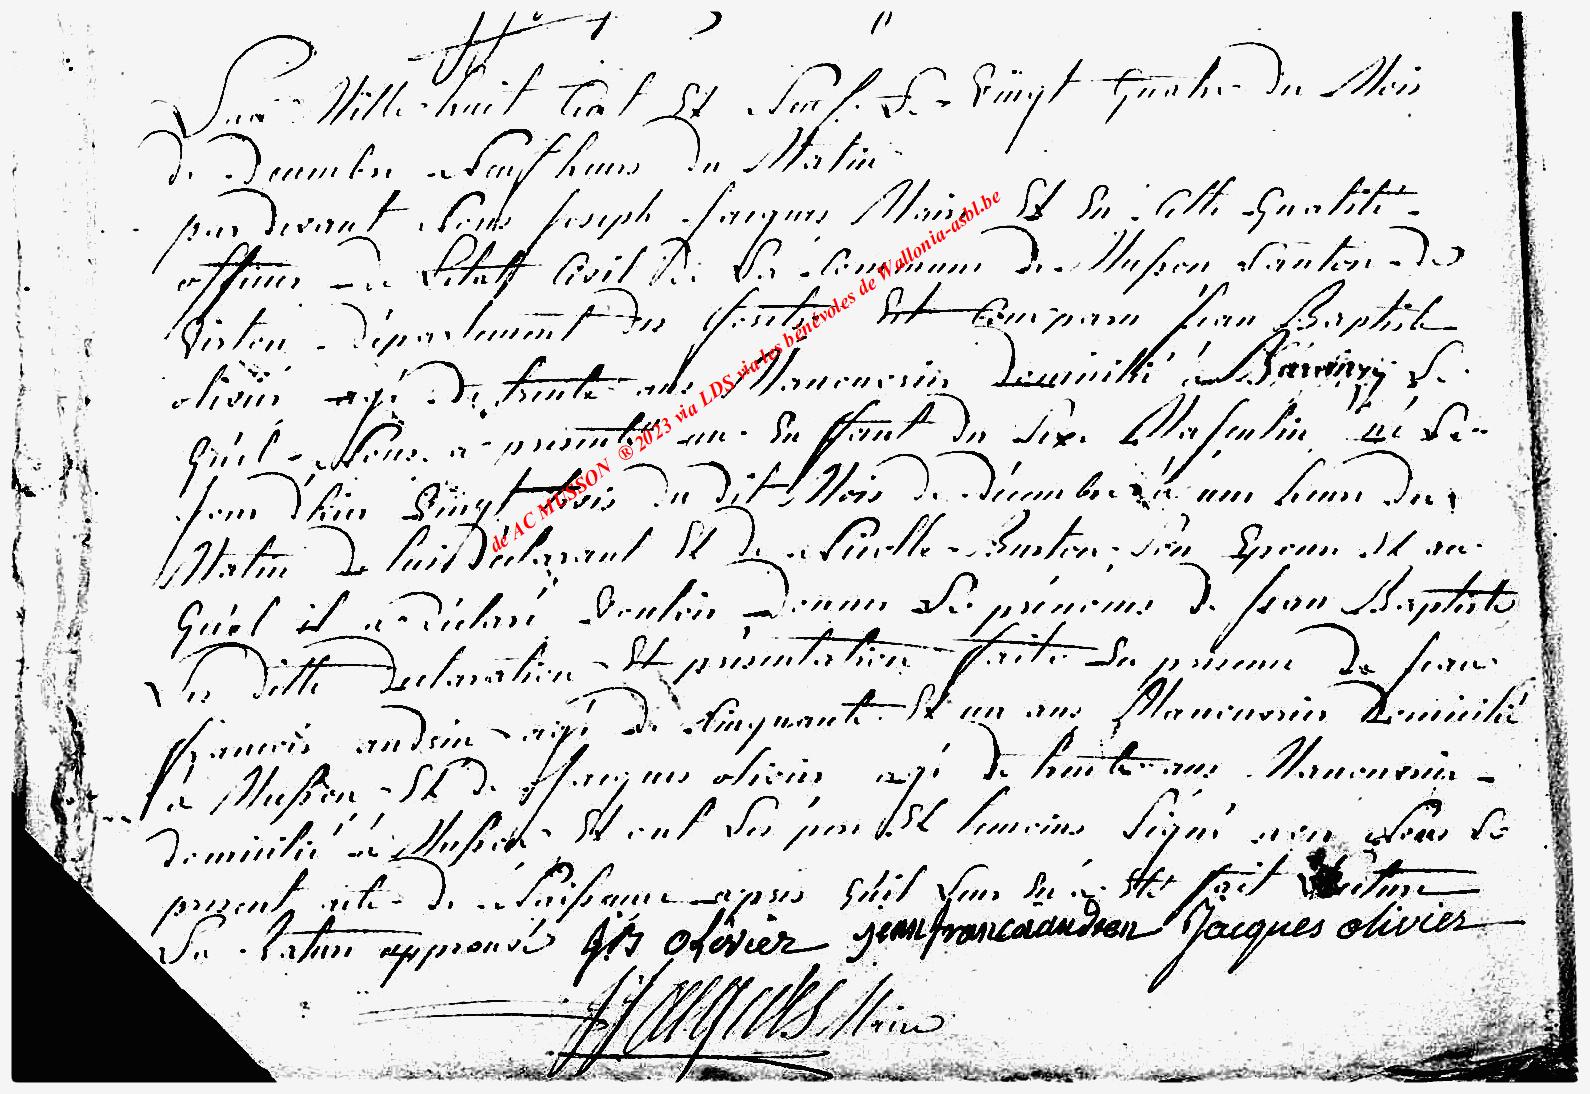 L'an Mille huit Cent Et Neuf Le Vingt Quatre du Mois
de Decembre Neuf heures du Matin
par devant Nous Joseph Jacques Maire Et En Cette Qualité
officier de L'état Civil de La Commune de Musson Canton de
Virton département des forêts Est Comparu Jean Baptiste
olivier agé de trente ans Manouvrier Domicilié à Baranzy Le
Quel Nous a presenté un Enffant du Sexe Masculin né Le
jour d'hier Vingt trois du dit Mois de décembre à une heure du
Matin de lui Déclarant Et de Nicolle Burton Son Epouse Et au
Quel il a Déclaré Vouloir Donner Le prénoms de Jean Baptiste
Les ditte Declaration Et présentation faite En presence De Jean
francois andrin agé de Cinquante Et un ans Manouvrier Domicilié
à Musson Et de Jacques olivier agé de trente ans Manouvrier
domicilié à Musson Et ont Les pere Et temoins Signé avec Nous Le
present acte de Naissance apres Qu'il Leur En a Eté fait Lecture
La Rature approuvé JBts olivier jean francoi andrien Jacques olivier
JJacques Maire
de AC MUSSON ®2023 via LDS via les bénévoles de Wallonia-asbl.be